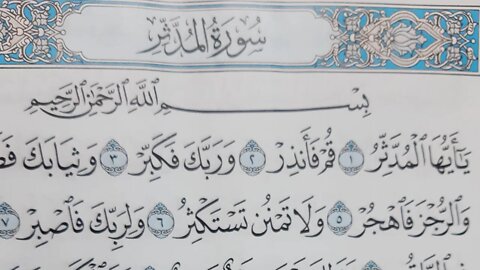 سُورَةُ المُدَّثِّرِ
بِسْمِ ٱللَّهِ ٱلرَّحْمَٰنِ ٱلرَّحِيمِ
يَٰٓأَيُّهَا ٱلْمُدَّثِّرُ ١ قُمْ فَأَنذِرْ ٢ وَرَبَّكَ فَكَبِّرْ ٣ وَثِيَابَكَ
وَٱلرُّجْزَ فَٱهْجُرْ ٥ وَلَا تَمْنُن تَسْتَكْثِرُ ٦ وَلِرَبِّكَ فَٱصْبِرْ ٧